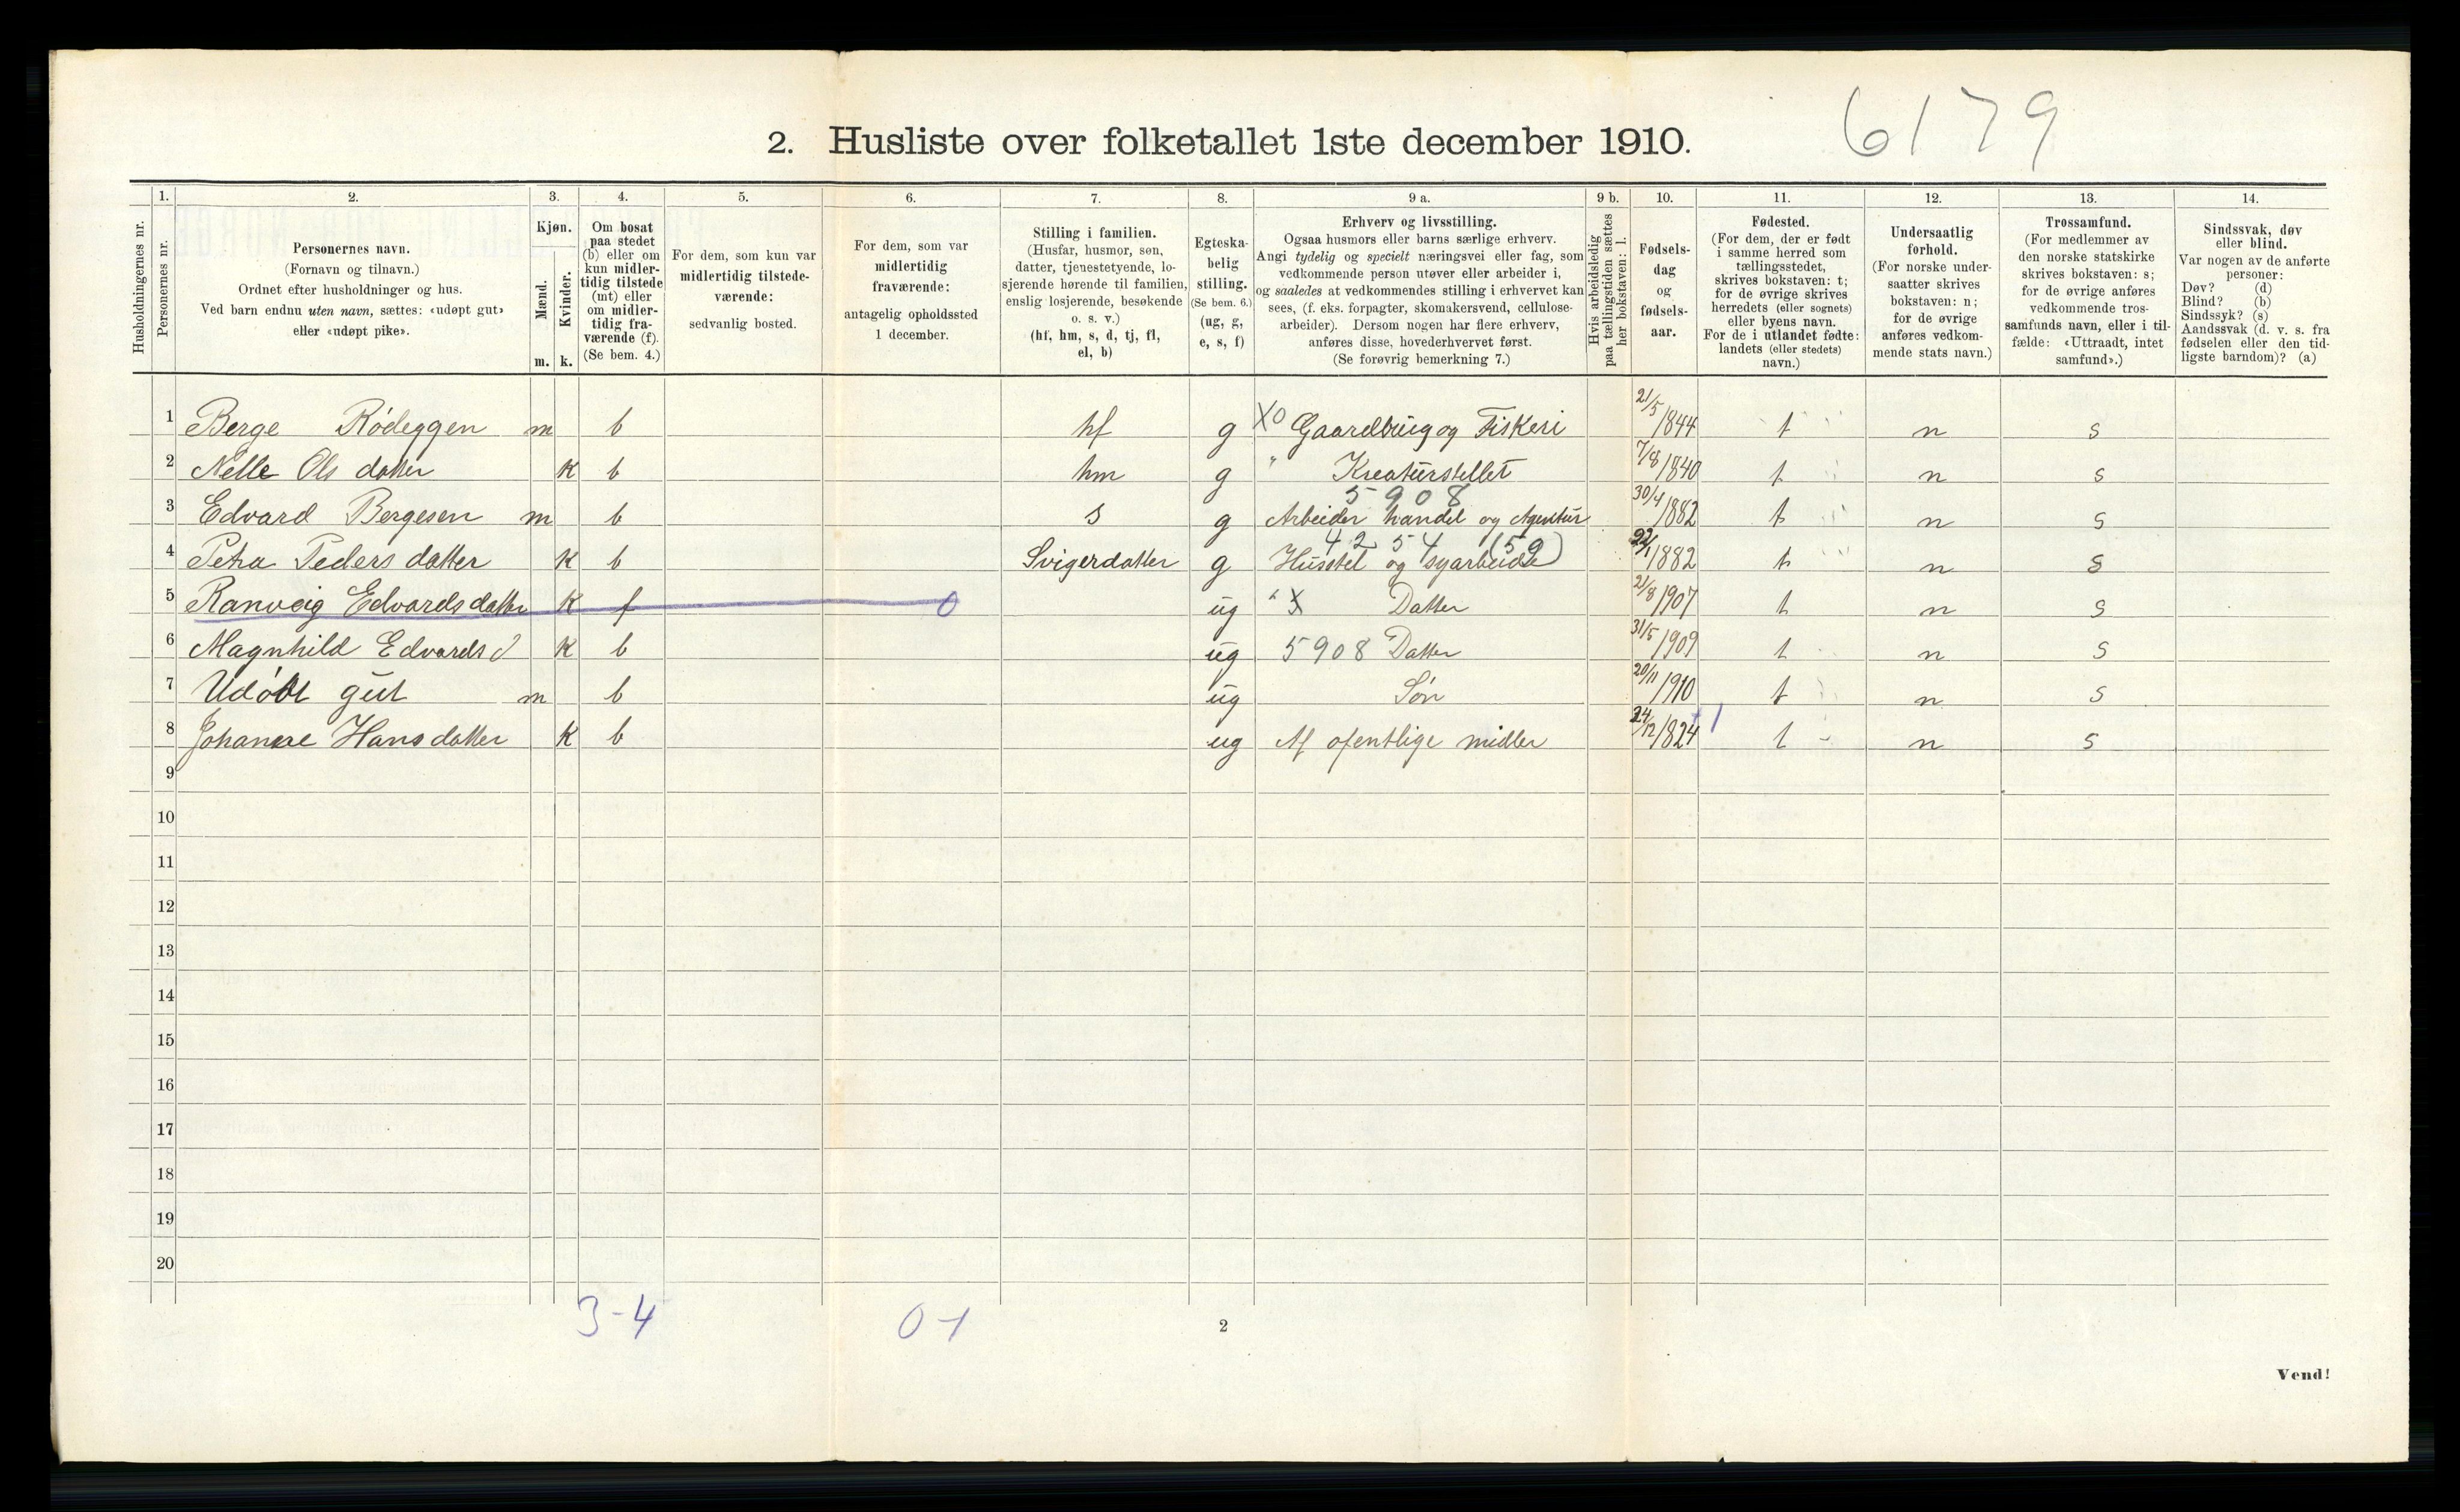 6179
2. Husliste over folketallet 1ste december 1910.
Husholdningernes nr.
1.
Personernes nr.
2.
Personernes navn.
(Fornavn og tilnavn.)
Ordnet efter husholdninger og hus.
Ved barn endnu uten navn, sættes: «udøpt gut»
eller «udøpt pike».
3.
Kjøn.
Mænd.
Kvinder.
m. k.
4.
Om bosat
paa stedet
(b) eller om
kun midler-
tidig tilstede
(mt) eller
om midler-
tidig fra-
værende (f).
(Se bem. 4.)
5.
For dem, som kun var
midlertidig tilstede-
værende:
sedvanlig bosted.
6.
For dem, som var
midlertidig
fraværende:
antagelig opholdssted
1 december.
7.
Stilling i familien.
(Husfar, husmor, søn,
datter, tjenestetyende, lo-
sjerende hørende til familien,
enslig losjerende, besøkende
o. s. v.)
(hf, hm, s, d, tj, fl,
el, b)
8.
Egteska-
belig
stilling.
(Se bem. 6.)
(ug, g,
e, s, f)
9 a.
Erhverv og livsstilling.
Ogsaa husmors eller barns særlige erhverv.
Angi tydelig og specielt næringsvei eller fag, som
vedkommende person utøver eller arbeider i,
og saaledes at vedkommendes stilling i erhvervet kan
sees, (f. eks. forpagter, skomakersvend, cellulose-
arbeider). Dersom nogen har flere erhverv,
anføres disse, hovederhvervet først.
(Se forøvrig bemerkning 7.)
9 b.
Hvis arbeidsledig
paa tællingstiden sættes
her bokstaven: l.
10.
Fødsels-
dag
og
fødsels-
aar.
11.
Fødested.
(For dem, der er født
i samme herred som
tællingsstedet,
skrives bokstaven: t;
for de øvrige skrives
herredets (eller sognets)
eller byens navn.
For de i utlandet fødte:
landets (eller stedets)
navn.)
12.
Undersaatlig
forhold.
(For norske under-
saatter skrives
bokstaven: n;
for de øvrige
anføres vedkom-
mende stats navn.)
13.
Trossamfund.
(For medlemmer av
den norske statskirke
skrives bokstaven: s;
for de øvrige anføres
vedkommende tros-
samfunds navn, eller i til-
fælde: «Uttraadt, intet
samfund».)
14.
Sindssvak, døv
eller blind.
Var nogen av de anførte
personer:
Døv? (d)
Blind? (b)
Sindssyk? (s)
Aandssvak (d. v. s. fra
fødselen eller den tid-
ligste barndom)? (a)
1 Berge Rödeggen m b hf g X0 Gaardbrug og Fiskeri 21/5 1844 t n s
2 Nelle Ols datter K b hm g " Kreaturstellet 7/8 1840 t n s
5908
3 Edvard Bergesen m b s g Arbeider handel og Agentur 30/4 1882 t n s
4254 (59)
4 Petra Peders datter K b Svigerdatter g Husstel og syarbeide 22/1 1882 t n s
5 Ranveig Edvards datter K f 0 ug " X Datter 21/8 1907 t n s
6 Magnhild Edvards d K b ug 5908 Datter 31/5 1909 t n s
7 Udöbt gut m b ug Sön 20/11 1910 t n s
8 Johanne Hans datter K b ug Af ofentlige midler 24/12 1824 +1 t n s
9
10
11
12
13
14
15
16
17
18
19
20
3-4 0-1
2
Vend!